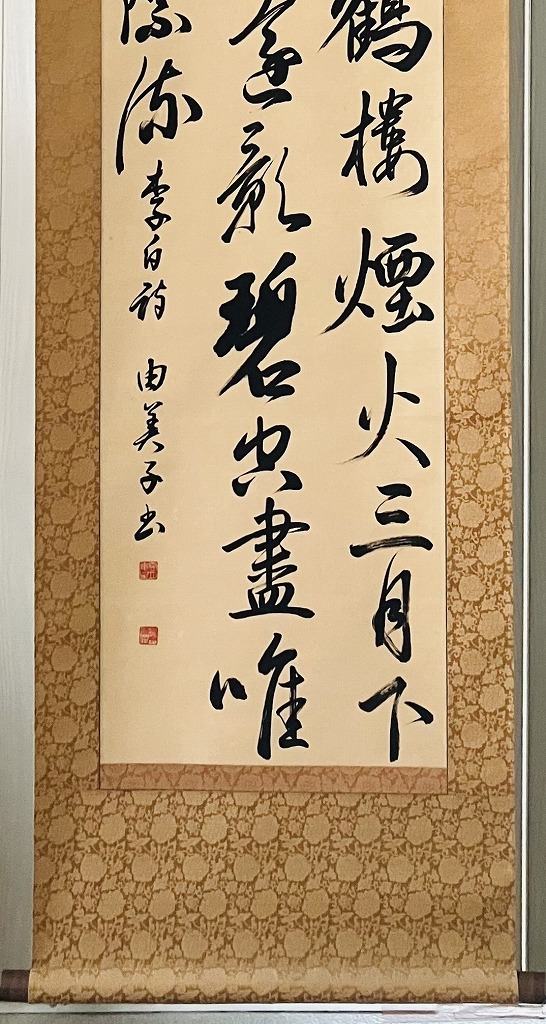 鶴樓煙火三月下
遠影碧空盡唯
際流 李白詩 由美子書